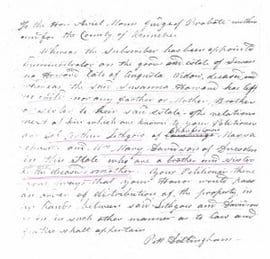 To the Hon Ariel Mann Judge of Probate within
and for the County of Kennebec
Whereas the Subscriber has been appointed
Administrator on the goods and estate of Susan
na Howard late of Augusta Widow, deceased and
whereas the said Susanna Howard has left
no child nor any father or Mother, Brother
or sister to their said estate & the relations
next of kin which are known to your Petitioner
are Arthur Lithgow of
and Mrs Mary Davidson of Dresden
in this State who are a brother and sister
to the deceased mother. Your Petitioner there
fore prays that your Honor would pass
an order of distribution of the property in
his hands between said Lithgow and Davidson
or in such other manner as to law and
justice shall appertain
Pitt Dillingham